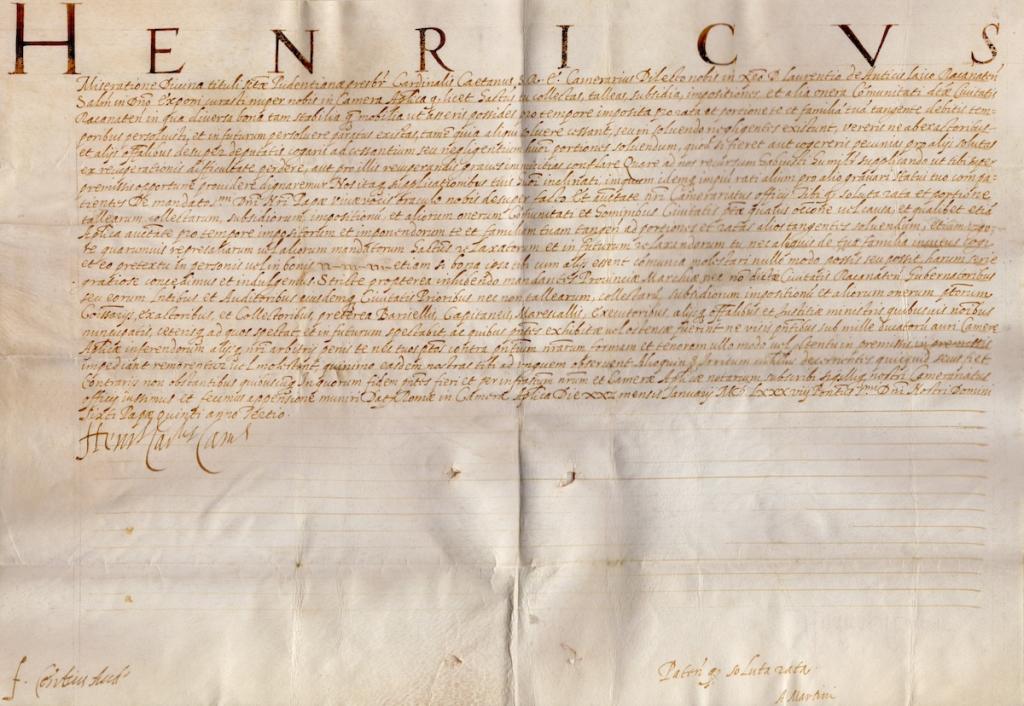 HENRICVS
Miseratione Divina tituli Stæ Pudentianæ presbr̃ Cardinalis Caetanus, S.R.E. Camerarius Dilecto nobis in Xp̃o D. Laurentio de Anticis laico Racanaten̄
Salm̃ in Dño. Exponi curasti nuper nobis in Camera Aplica q̃ licet Factus tu collectas, talleas, subsidia, impositiones et alia onera Comunitati dictæ Civitatis
Racanaten̄ in qua diversa bona tam stabilia q̃ mobilia ut asseris possides pro tempore imposita pro rata et portione te et familiã tuã tangente debitis tem-
poribus persolvisti, et in futurum persolvere paratus existas, tamẽ quia aliqui solvere cessant, seu in solvendo negligentes existunt, vereris ne ab exactorib9
et alijs offãlibus desuper deputatis cogaris ad cessantium seu negligentium huiõi portiones solvendum, quod si fieret aut cogereris pecunias pro alijs solutas
ex recuperationis difficultate perdere, aut pro illis recuperandis graves inimicitias constare Quare ad nos recursum habuisti humilr̃ supplicando ut tibi super
premissis opportune providere dignaremur Nos itaq supplicationibus tuis inclinati, iniquum idemq impium rati alium pro alio gravari statui tuo compa-
tientes De mandato Dñi Nr̃i Papæ vivæ vocis oraculo nobis desuper facto Et auctate nr̃i Camerariatus officij Tibi q̃ soluta rata et portione
tallearum, collectarum, subsidiorum impositionũ et aliorum onerum Comunitati et hominibus Civitatis præ qualis occõne vel causa, et qualibet etiã
Aplica auctate pro tempore impositorum et imponendorum te et familiam tuam tangen̄ ad portiones et ratas alios tangentes solvendum, etiam vigo-
re quarumvis represaliarum vel aliorum mandatorum tu nec aliquis de tua familia invitus cogi
et eo pretextu in personis vel in bonis etiam si bona ipsa tibi cum alijs essent comunia molestari nullo modo possis seu possit, harum serie
gratiose concedimus et indulgemus Stricte propterea inhibendo mandantes Provinciæ Marchiæ nec nõ dictæ Civitatis Racanaten̄ Gubernatoribus
seu eorum Locatentibus et Auditoribus eiusdemq Civitatis Prioribus nec non tallearum, collectarũ, subsidiorum impositionũ et aliorum onerum ptõrum
Comissarijs, exactoribus, et Collectoribus, preterea Baricellis, Capitaneis, Marescallis, executoribus alijsq offalibus et Justitiæ ministris quibusvis noibus
nuncupatis, ceterisq ad quos spectat, et in futurum spectabit ac quibus pñtes exhibitæ vel ostensæ fuerint ne visis pñtibus sub mille ducatorũ auri Cameræ
Aplicæ inferendorum alijsq nr̃i arbitrij penis te nec tuos ptõs contra pñtium nr̃arum formam et tenorem ullo modo vel attentu in premissis vel premissis
impediant remorentve vel molestent, quinimo easdem nostras tibi ad unguem observent Alioquin Irritum decernentes quicquid secus fiet
Contrarijs non obstantibus quibuscũq In quorum fidem pñtes fieri et per infrascriptum nr̃um et Cameræ Aplicæ notarium subscribi sigilliq nostri Camerariatus
officij iussimus et fecimus appensione muniri Dat. Romæ in Camera Aplica Die mensis Januarij M D LXXXVIIJ Pontus Dñi Nostri Domini
Sixti Papæ quinti anno Tertio.
Henr Carlis Cam̃s
Patẽn q̃ soluta rata.
A. Martini